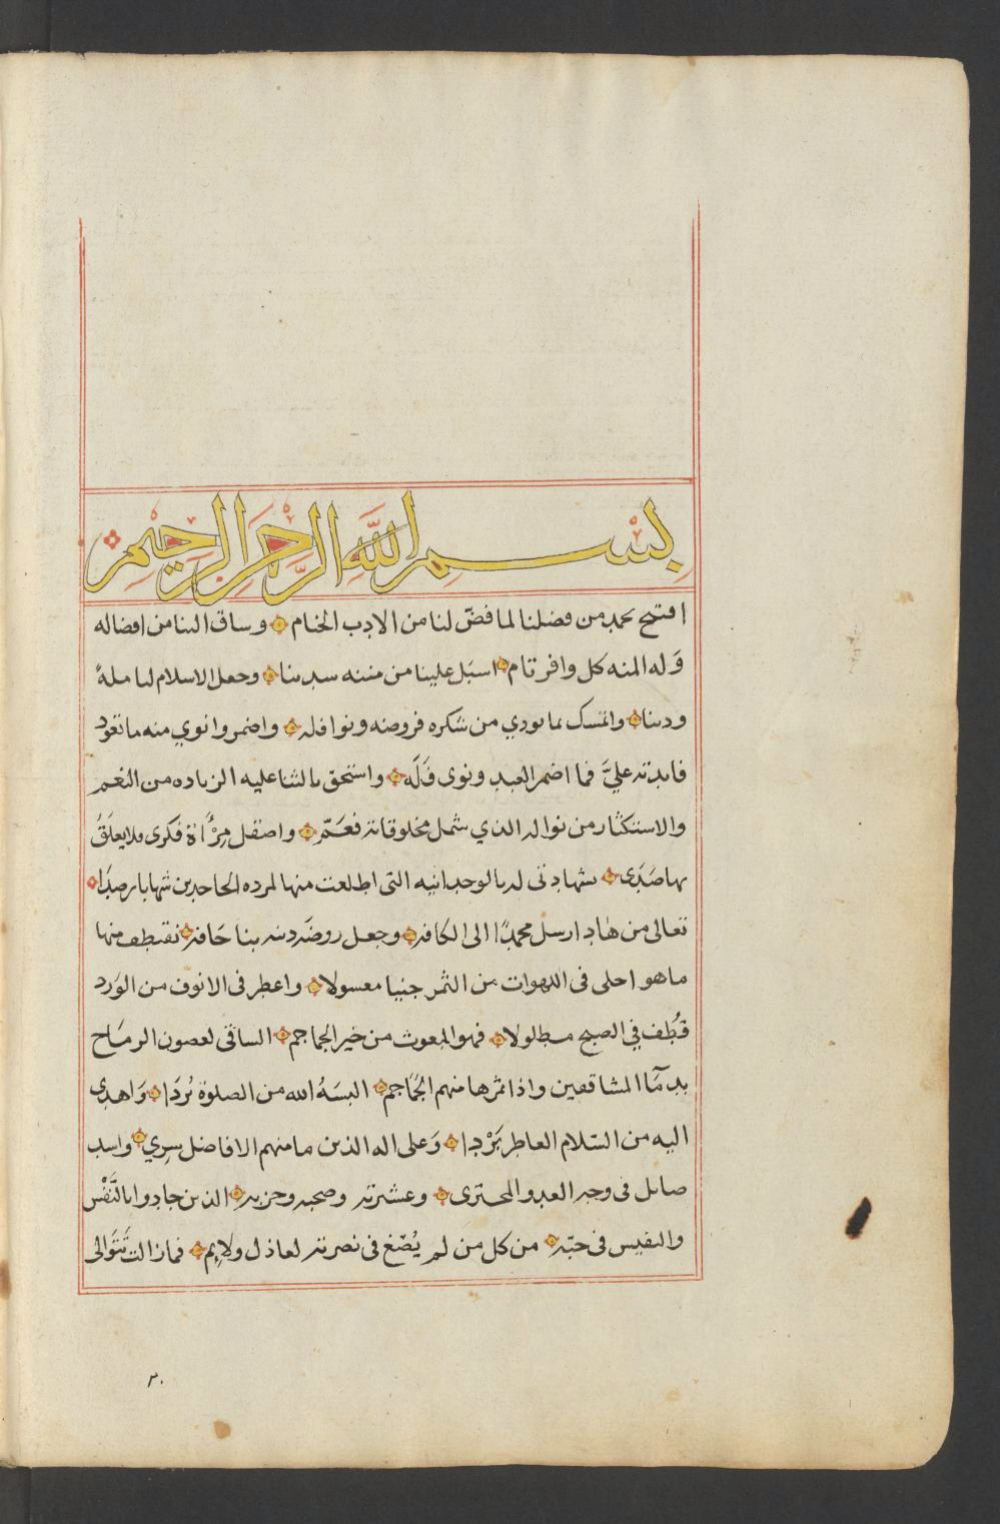 بسم الله الرحمن الرحيم
افتتح بحمد من فضلنا لما فضّ لنا من الادب الختام وساق الينا من افضاله
وَله المنه كل وافر تام اسبَل علينا من مننه سدينا وجعل الاسلام لنا ملةً
ودينا واتمسك بما يودي من شكره فروضه ونوافله واضمر وانوي منه ما تعود
فايدته عليَّ فما اضمر العبد ونوى فَلَه واستحق بالثنا عليه الزياده من النعم
والاستكثار من نواله الذي شمل مخلوقاته فعَمّ واصقل مِرْأاة فكرى فلا يعلَقُ
بها صَدَى بشهادتى له بالوحدانيه التى اطلعت منها لمرده الجاحدين شهابا رصدَا
تعالى من هاد ارسل محمدًا الى الكافه وجعل روضَ دينه بنا حَافه نقتطف منها
ما هو احلى فى اللهوات من الثمر جنيا معسولا واعطر فى الانوف من الوَرد
قُطف في الصبح مطلولا فهو المبعوث من خير الجماجم الساقى لغصون الرمَاح
بدمَآ المشاققين واذا ثمرها منهم الجَمَاجم البسَهُ الله من الصلوة بُردَا وَاهدى
اليه من السّلام العاطر بَرْدا وَعلى اله الذين ما منهم الا فاضل سِري واسد
صايل فى وجه العدو المجترى وعشيرته وصحبه وحزبه الذين جادوا بالنَّفْس
والنفيس فى حبّه من كل من لم يُصْغ فى نصرته لعاذل ولايم فما زالت تَتَوالى